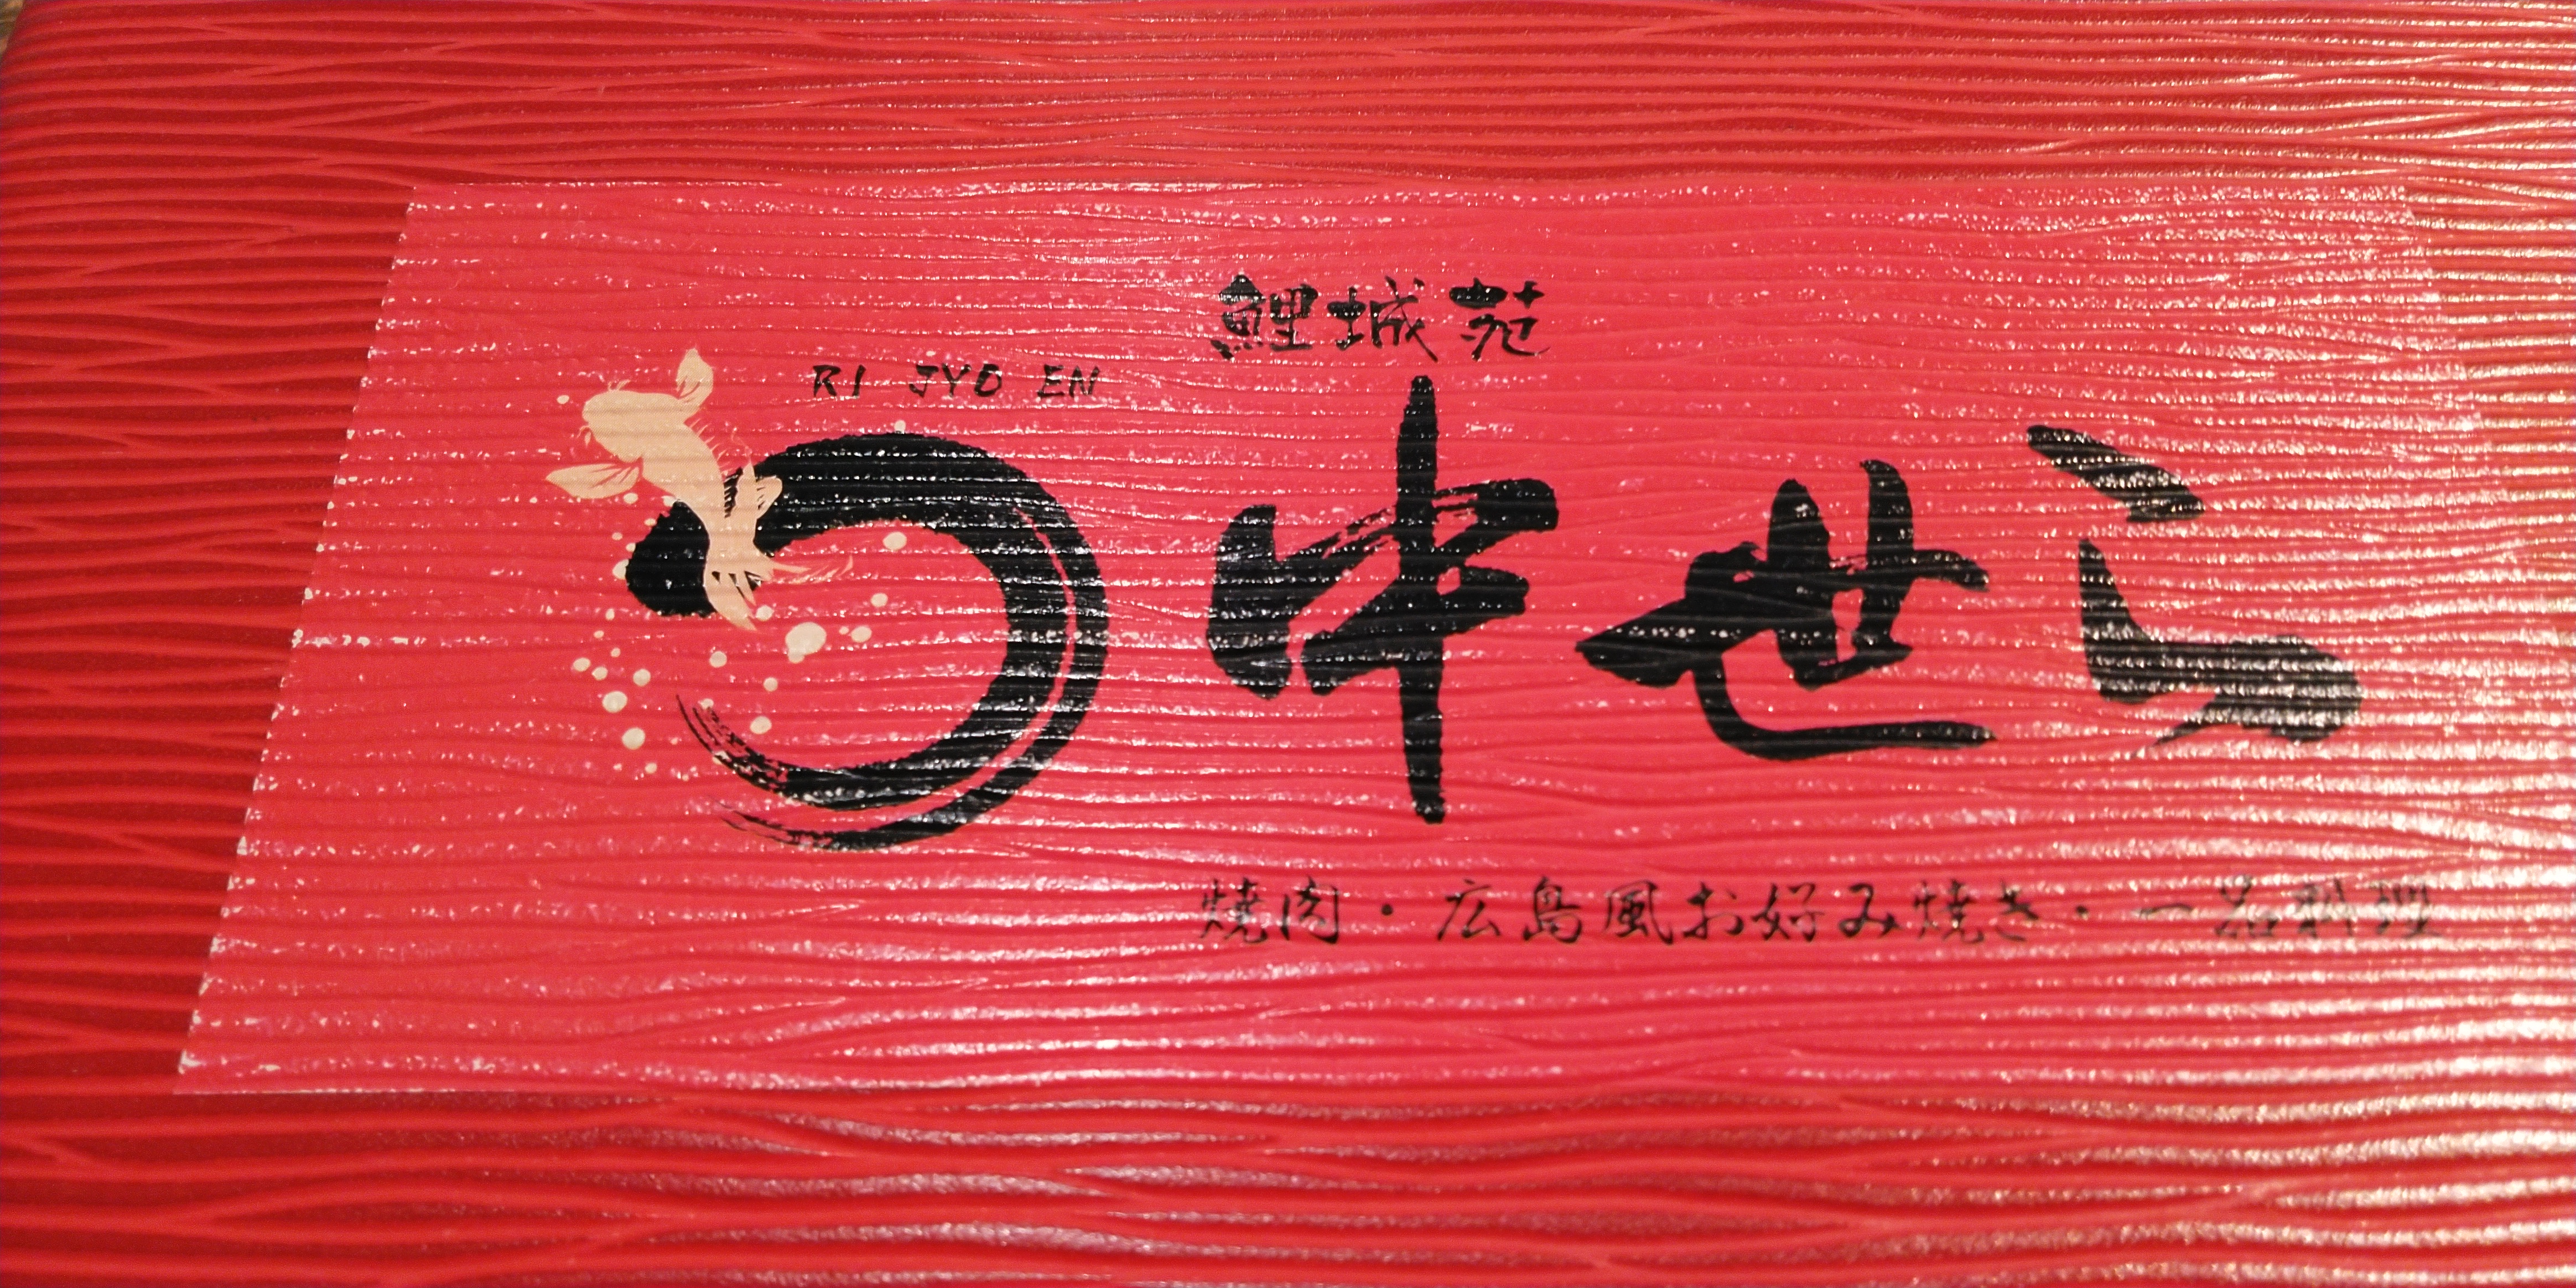 鯉城苑
RI JYO EN
中世らん
焼肉・広島風お好み焼き・一品料理